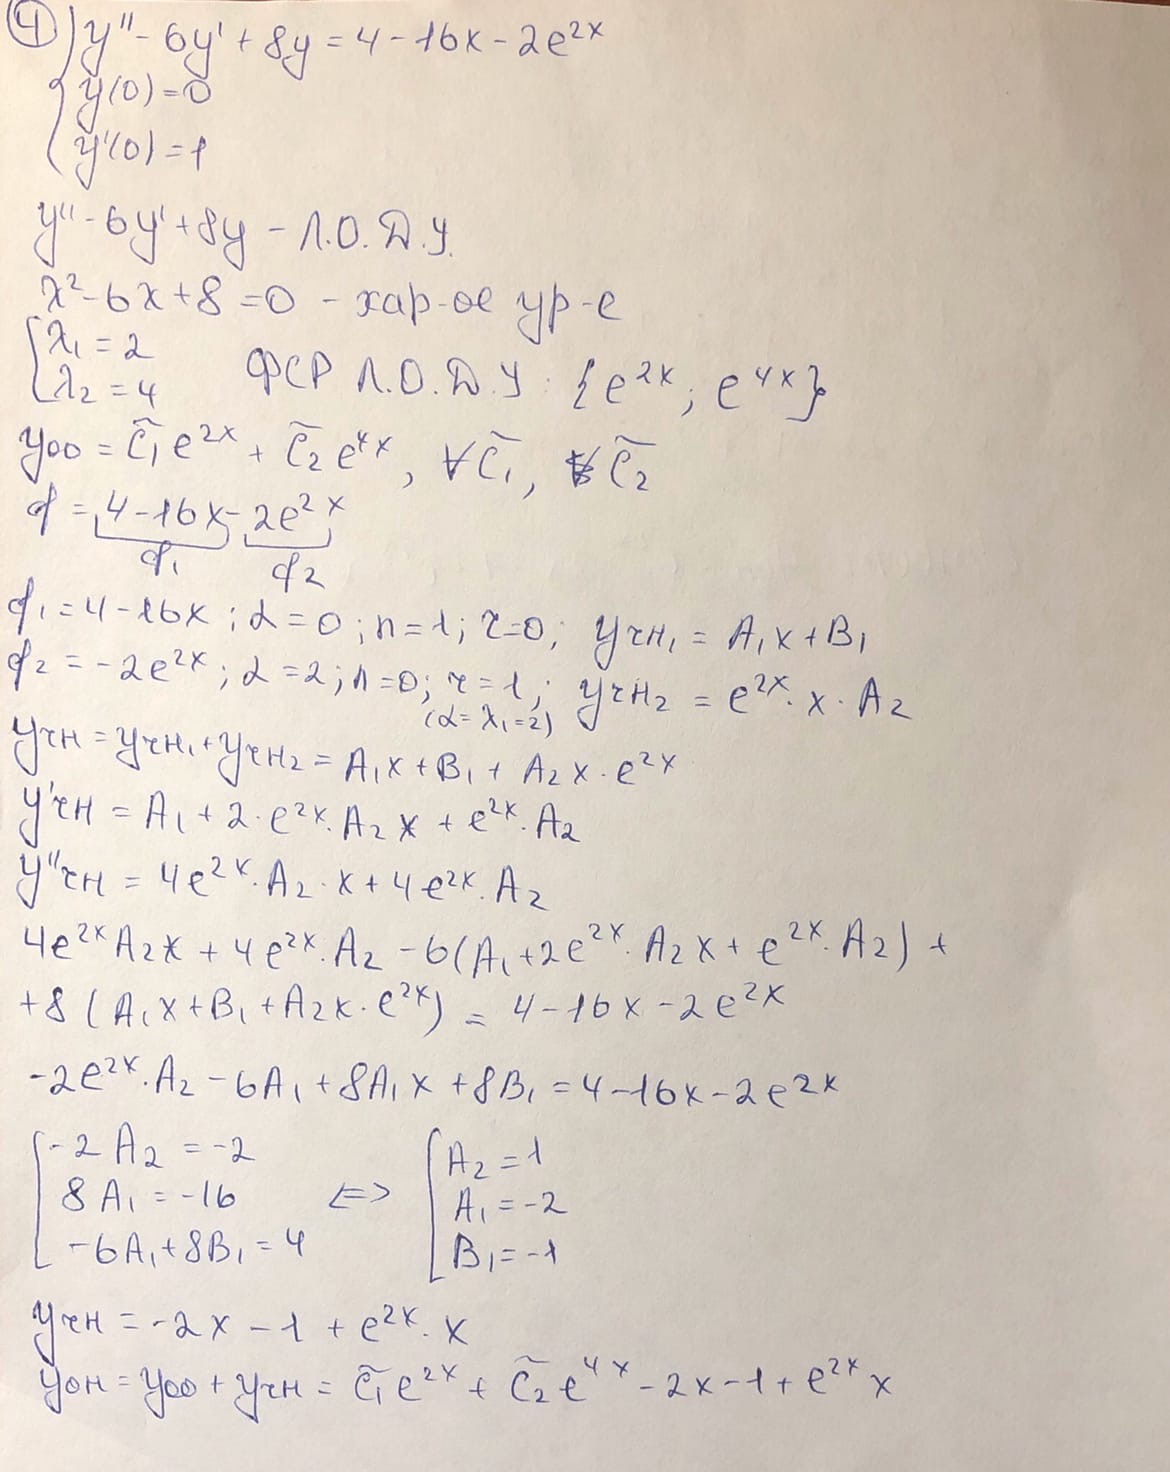 ④ y'' - 6y' + 8y = 4 - 16x - 2e^{2x}
y(0) = 0
y'(0) = 1
y'' - 6y' + 8y - Л.О.Д.У.
λ² - 6λ + 8 = 0 - хар-ое ур-е
[λ₁ = 2
λ₂ = 4 ФСР Л.О.Д.У: {e^{2x}; e^{4x}}
y₀₀ = C̃₁e^{2x} + C̃₂e^{4x}, ∀C̃₁, ∀C̃₂
f = 4 - 16x - 2e^{2x}
f₁ f₂
f₁ = 4 - 16x; α = 0; n = 1; r = 0; yчн₁ = A₁x + B₁
f₂ = -2e^{2x}; α = 2; n = 0; r = 1; yчн₂ = e^{2x} · x · A₂
(α = λ₁ = 2)
yчн = yчн₁ + yчн₂ = A₁x + B₁ + A₂x · e^{2x}
y'чн = A₁ + 2 · e^{2x} · A₂x + e^{2x} · A₂
y''чн = 4e^{2x} · A₂ · x + 4e^{2x} · A₂
4e^{2x}A₂x + 4e^{2x} · A₂ - 6(A₁ + 2e^{2x} · A₂x + e^{2x} · A₂) +
+ 8(A₁x + B₁ + A₂x · e^{2x}) = 4 - 16x - 2e^{2x}
-2e^{2x} · A₂ - 6A₁ + 8A₁x + 8B₁ = 4 - 16x - 2e^{2x}
[-2A₂ = -2 [A₂ = 1
8A₁ = -16 <=> A₁ = -2
-6A₁ + 8B₁ = 4 B₁ = -1
yчн = -2x - 1 + e^{2x} · x
yон = y₀₀ + yчн = C̃₁e^{2x} + C̃₂e^{4x} - 2x - 1 + e^{2x}x